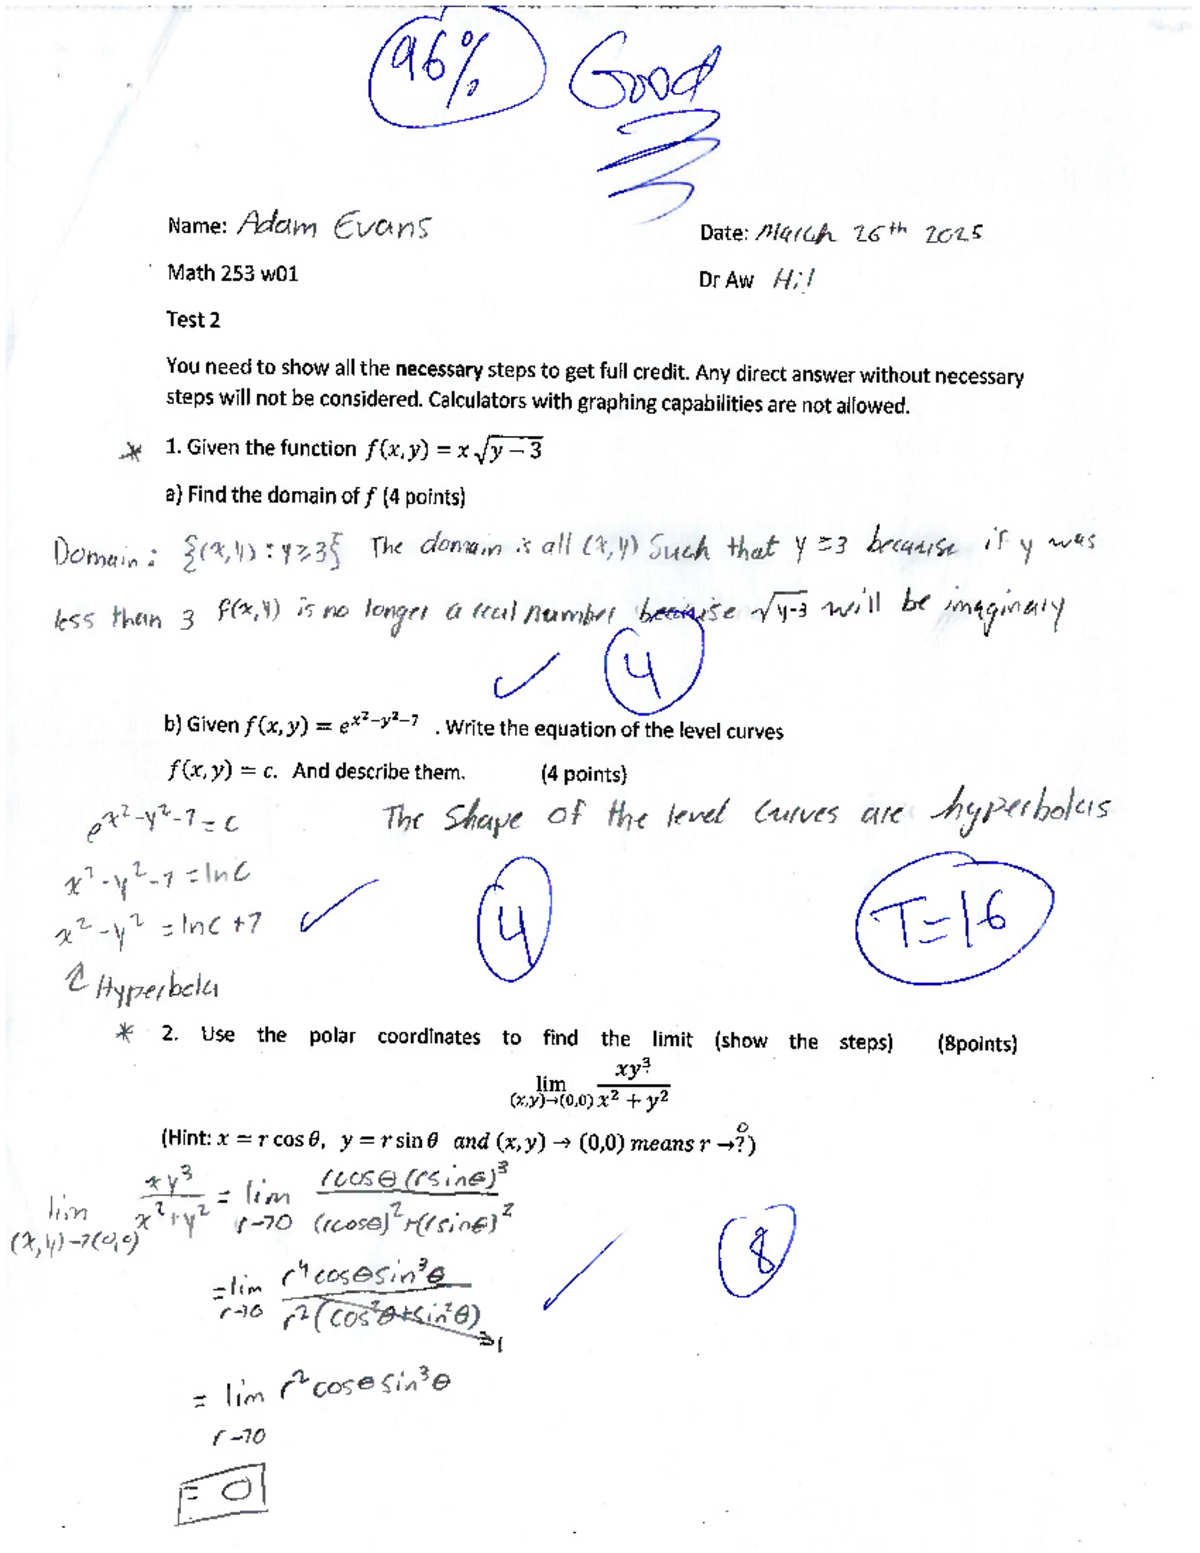 96% Good
Name: Adam Evans Date: March 26th 2025
Math 253 w01 Dr Aw Hi!
Test 2
You need to show all the necessary steps to get full credit. Any direct answer without necessary
steps will not be considered. Calculators with graphing capabilities are not allowed.
* 1. Given the function f(x,y) = x√(y − 3)
a) Find the domain of f (4 points)
Domain: {(x,y) : y≥3} The domain is all (x,y) such that y ≥3 because if y was
less than 3 f(x,y) is no longer a real number because √(y-3) will be imaginary
✓ 4
b) Given f(x,y) = e^(x²−y²−7) . Write the equation of the level curves
f(x,y) = c. And describe them. (4 points)
e^(x²-y²-7) = c The shape of the level curves are hyperbolas
x²-y²-7 = lnc
x²-y² = lnc +7 ✓ 4 T=16
↑ Hyperbola
* 2. Use the polar coordinates to find the limit (show the steps) (8points)
lim (x,y)→(0,0) xy³/(x² + y²)
(Hint: x = r cos θ, y = r sin θ and (x,y) → (0,0) means r →? 0)
lim (x,y)→(0,0) xy³/(x²+y²) = lim r→0 rcosθ(rsinθ)³/((rcosθ)²+(rsinθ)²)
= lim r→0 r⁴cosθsin³θ/(r²(cos²θ+sin²θ)) →1 ✓ 8
= lim r→0 r²cosθsin³θ
= 0